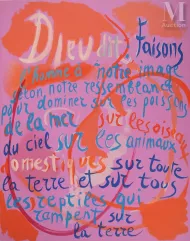 M
Dieu dit, faisons
l'homme à notre image
selon notre ressemblance
pour dominer sur les poissons
de la mer sur les oiseaux
du ciel sur les animaux
domestiques sur toute
la terre et sur tous
les reptiles qui
rampent sur
la terre